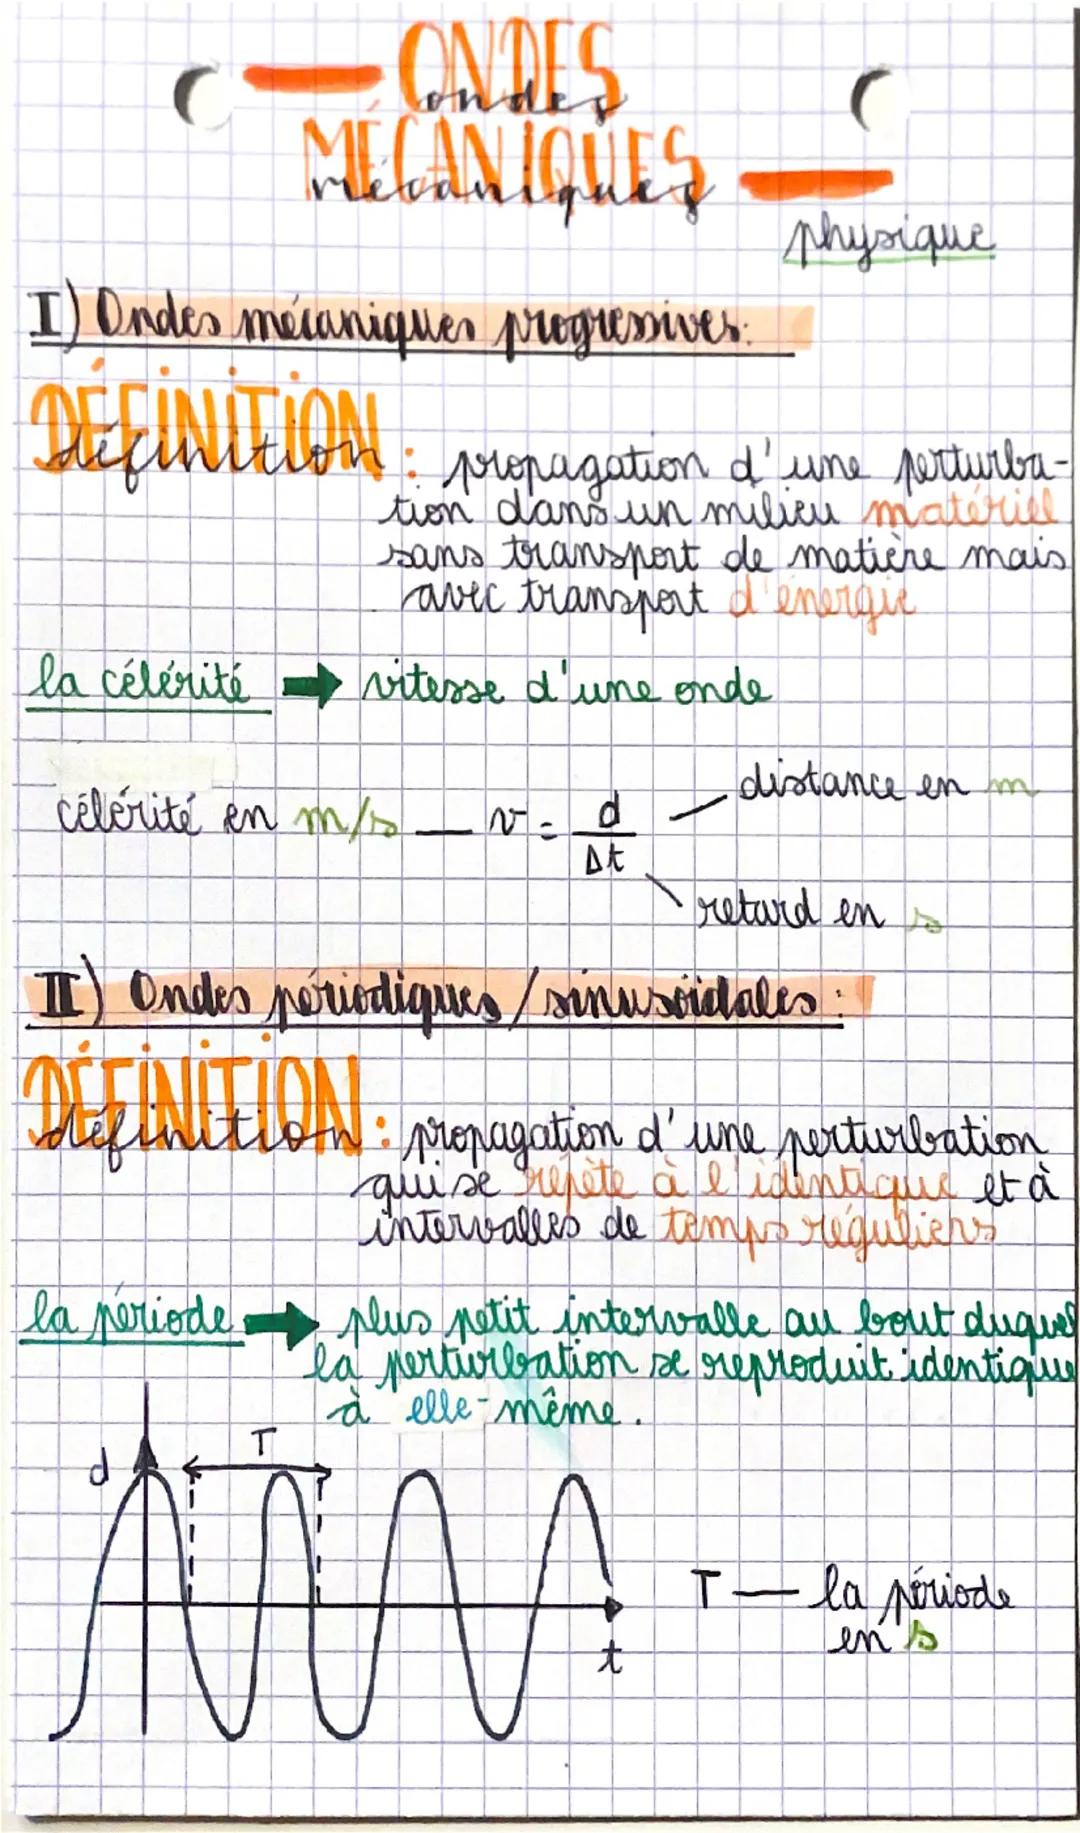 ONDES
ondes
MÉCANIQUES
mécaniques
physique
I) Ondes mécaniques progressives:
DÉFINITION
définition : propagation d'une perturba-
tion dans un milieu matériel
sans transport de matière mais
avec transport d'énergie
la célérité → vitesse d'une onde
célérité en m/s — v = d/Δt
distance en m
retard en s
II) Ondes périodiques/sinusoïdales:
DÉFINITION
définition : propagation d'une perturbation
qui se répète à l'identique et à
intervalles de temps réguliers
la période → plus petit intervalle au bout duquel
la perturbation se reproduit identique
à elle-même.
d
T
t
T — la période
en s